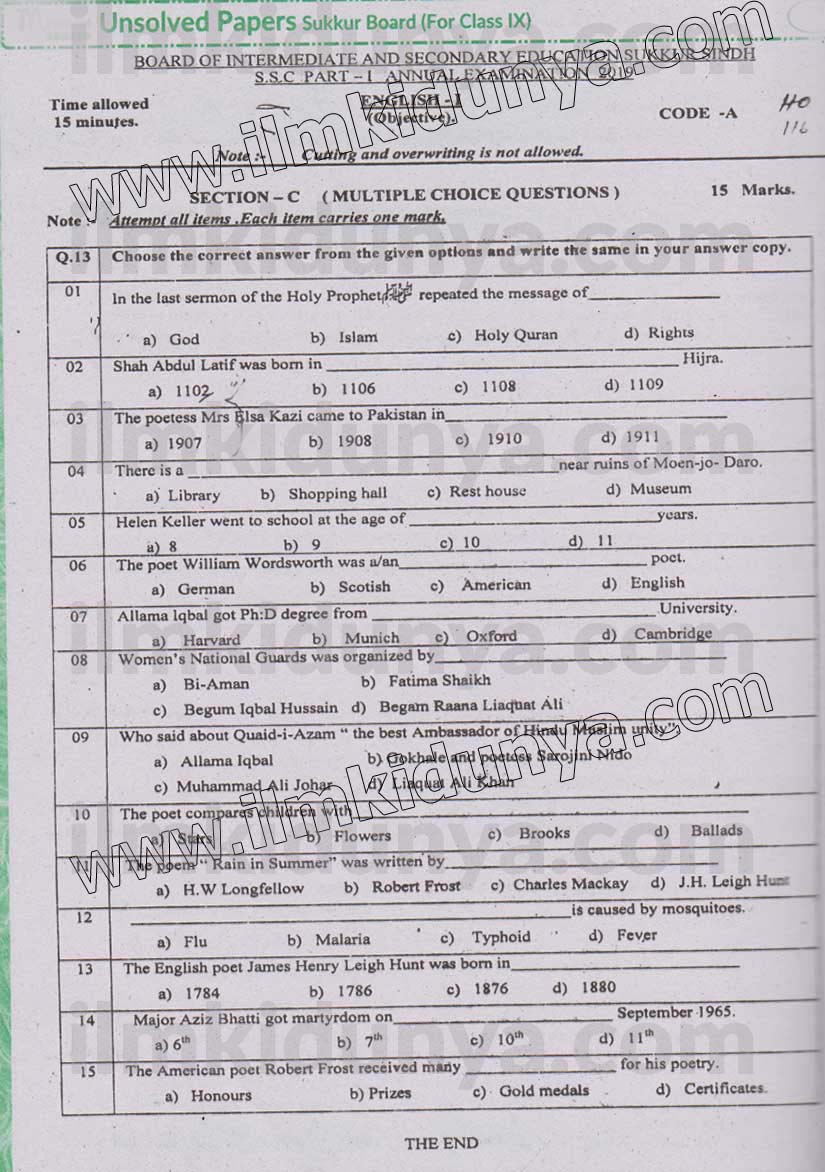 Unsolved Papers Sukkur Board (For Class IX)
BOARD OF INTERMEDIATE AND SECONDARY EDUCATION SUKKUR SINDH
S.S.C PART – I ANNUAL EXAMINATION 2019
Time allowed ENGLISH - I CODE -A
15 minutes. (Objective).
Note :- Cutting and overwriting is not allowed.
SECTION – C ( MULTIPLE CHOICE QUESTIONS ) 15 Marks.
Note :- Attempt all items .Each item carries one mark.
Q.13 Choose the correct answer from the given options and write the same in your answer copy.
01 In the last sermon of the Holy Prophet ﷺ repeated the message of
a) God b) Islam c) Holy Quran d) Rights
02 Shah Abdul Latif was born in Hijra.
a) 1102 b) 1106 c) 1108 d) 1109
03 The poetess Mrs Elsa Kazi came to Pakistan in
a) 1907 b) 1908 c) 1910 d) 1911
04 There is a near ruins of Moen-jo- Daro.
a) Library b) Shopping hall c) Rest house d) Museum
05 Helen Keller went to school at the age of years.
a) 8 b) 9 c) 10 d) 11
06 The poet William Wordsworth was a/an poet.
a) German b) Scotish c) American d) English
07 Allama Iqbal got Ph:D degree from University.
a) Harvard b) Munich c) Oxford d) Cambridge
08 Women's National Guards was organized by
a) Bi-Aman b) Fatima Shaikh
c) Begum Iqbal Hussain d) Begam Raana Liaquat Ali
09 Who said about Quaid-i-Azam “ the best Ambassador of Hindu Muslim unity”,
a) Allama Iqbal b) Gokhale and poetess Sarojini Nido
c) Muhammad Ali Johar d) Liaquat Ali Khan
10 The poet compares children with
a) Stars b) Flowers c) Brooks d) Ballads
The poem “ Rain in Summer” was written by
a) H.W Longfellow b) Robert Frost c) Charles Mackay d) J.H. Leigh Hunt
12 is caused by mosquitoes.
a) Flu b) Malaria c) Typhoid d) Fever
13 The English poet James Henry Leigh Hunt was born in
a) 1784 b) 1786 c) 1876 d) 1880
14 Major Aziz Bhatti got martyrdom on September 1965.
a) 6th b) 7th c) 10th d) 11th
15 The American poet Robert Frost received many for his poetry.
a) Honours b) Prizes c) Gold medals d) Certificates.
THE END
www.ilmkidunya.com
www.ilmkidunya.com
ilmkidunya.com
ilmkidunya.com
ilmkidunya.com
ilmkidunya.com
ilmkidunya.com